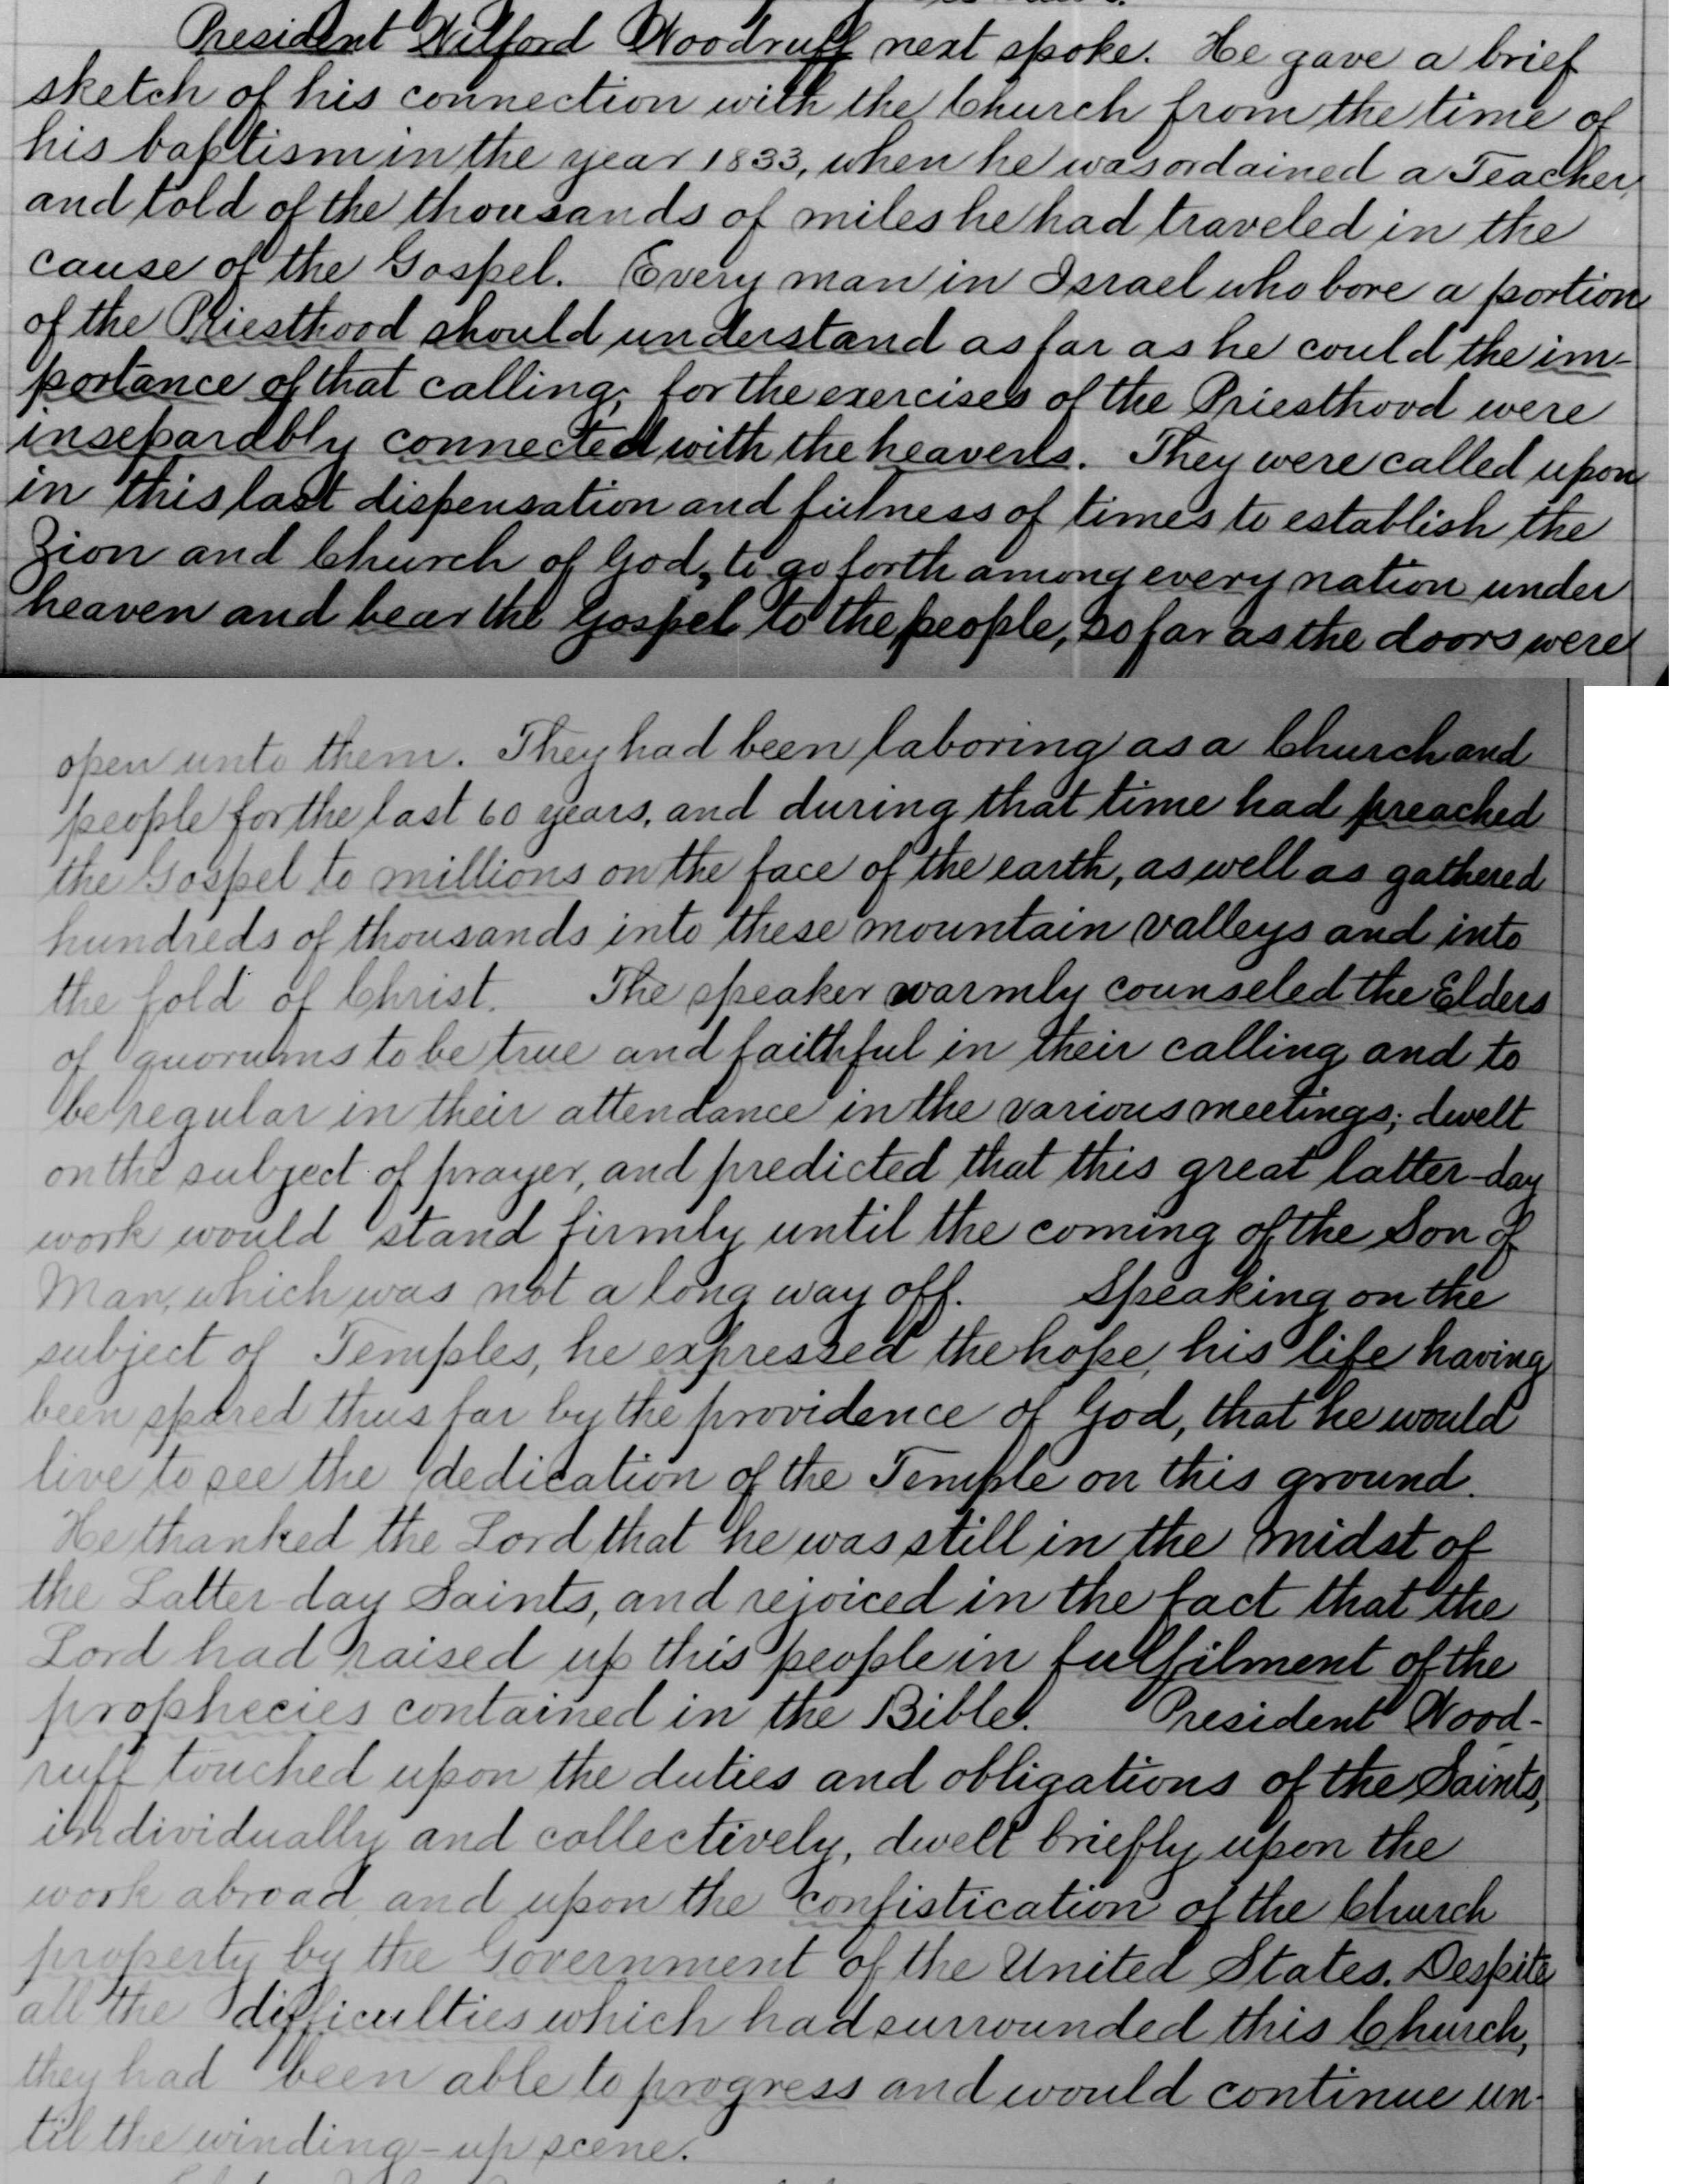 President Wilford Woodruff next spoke. He gave a brief
sketch of his connection with the Church from the time of
his baptism in the year 1833, when he was ordained a Teacher,
and told of the thousands of miles he had traveled in the
cause of the Gospel. Every man in Israel who bore a portion
of the Priesthood should understand as far as he could the im-
portance of that calling; for the exercises of the Priesthood were
inseparably connected with the heavens. They were called upon
in this last dispensation and fulness of times to establish the
Zion and Church of God, to go forth among every nation under
heaven and bear the Gospel to the people, so far as the doors were
open unto them. They had been laboring as a Church and
people for the last 60 years, and during that time had preached
the Gospel to millions on the face of the earth, as well as gathered
hundreds of thousands into these mountain valleys and into
the fold of Christ. The speaker warmly counseled the Elders
of quorums to be true and faithful in their calling and to
be regular in their attendance in the various meetings; dwelt
on the subject of prayer, and predicted that this great latter-day
work would stand firmly until the coming of the Son of
Man, which was not a long way off. Speaking on the
subject of Temples, he expressed the hope, his life having
been spared thus far by the providence of God, that he would
live to see the dedication of the Temple on this ground.
He thanked the Lord that he was still in the midst of
the Latter-day Saints, and rejoiced in the fact that the
Lord had raised up this people in fulfilment of the
prophecies contained in the Bible. President Wood-
ruff touched upon the duties and obligations of the Saints,
individually and collectively, dwelt briefly upon the
work abroad and upon the confistication of the Church
property by the Government of the United States. Despite
all the difficulties which had surrounded this Church,
they had been able to progress and would continue un-
til the winding-up scene.